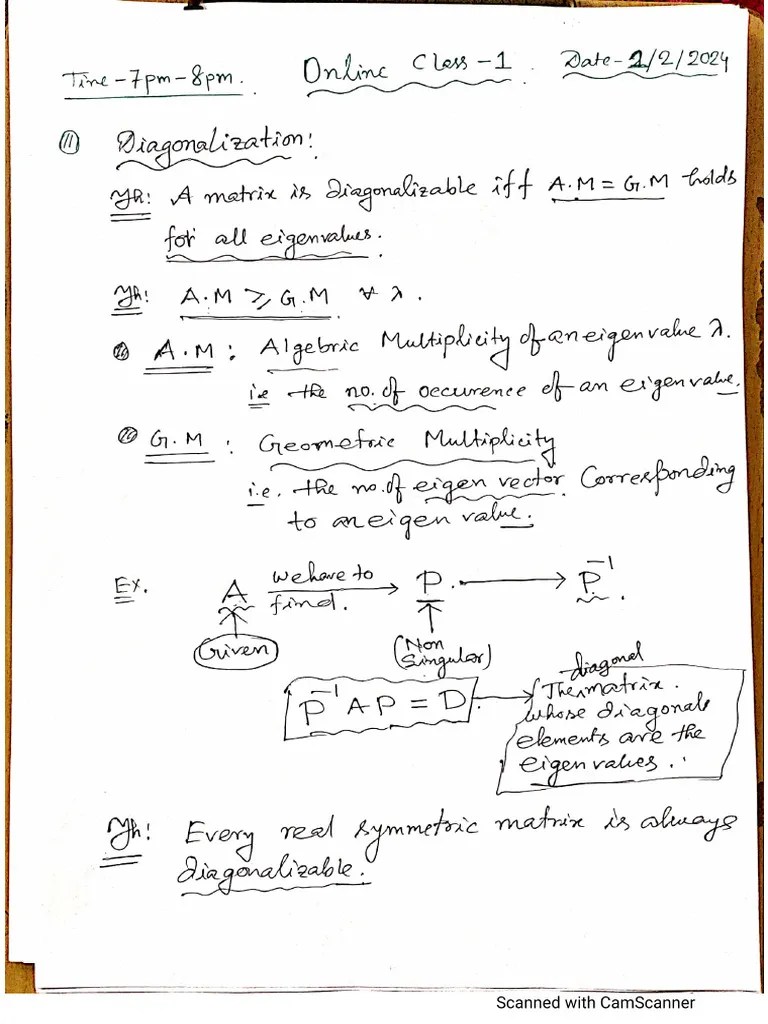 Time - 7pm - 8pm. Online Class - 1 Date - 2/2/2024
(11) Diagonalization:
Th: A matrix is Diagonalizable iff A.M = G.M holds
for all eigenvalues.
Th: A.M ≥ G.M ∀ λ.
A.M : Algebric Multiplicity of an eigenvalue λ.
i.e the no. of occurence of an eigenvalue.
G.M : Geometric Multiplicity
i.e. the no. of eigen vector Corresponding
to an eigen value.
Ex. A we have to find. → P. → P⁻¹.
Given
(Non Singular)
P⁻¹ A P = D → The diagonal matrix.
whose diagonals
elements are the
eigenvalues.
Th: Every real symmetric matrix is always
diagonalizable.
Scanned with CamScanner